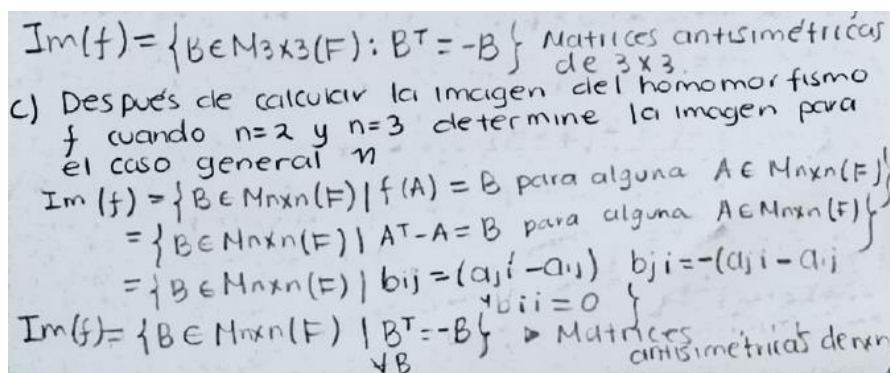 Im(f) = {B ∈ M3x3(F) : B^T = -B} Matrices antisimétricas
de 3x3.
c) Después de calcular la imagen del homomorfismo
f cuando n=2 y n=3 determine la imagen para
el caso general n
Im (f) = {B ∈ Mnxn(F) | f(A) = B para alguna A ∈ Mnxn(F)}
= {B ∈ Mnxn(F) | A^T - A = B para alguna A ∈ Mnxn(F)}
= {B ∈ Mnxn(F) | bij = (aji - aij) bji = -(aji - aij
y bii = 0 }
Im(f) = {B ∈ Mnxn(F) | B^T = -B} ▸ Matrices
∀B antisimétricas de nxn